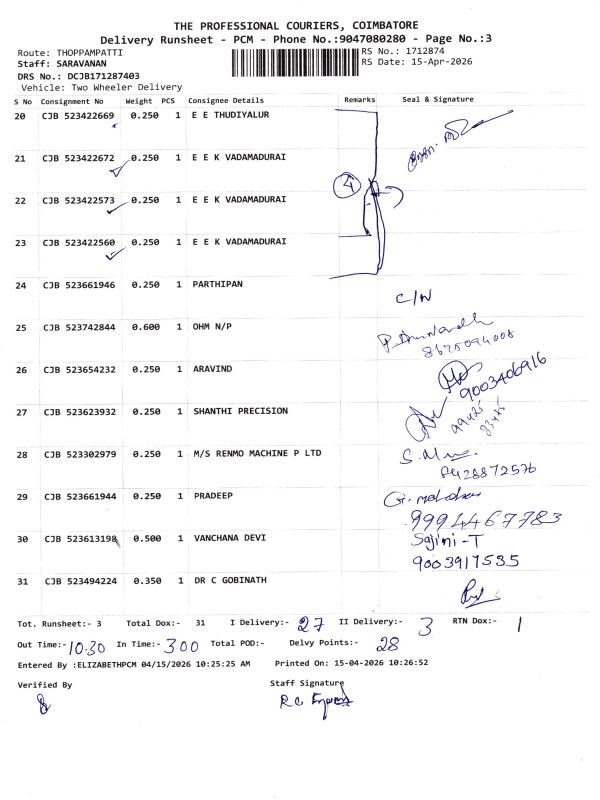 THE PROFESSIONAL COURIERS, COIMBATORE
Delivery Runsheet - PCM - Phone No.:9047080280 - Page No.:3
Route: THOPPAMPATTI RS No.: 1712874
Staff: SARAVANAN RS Date: 15-Apr-2026
DRS No.: DCJB171287403
Vehicle: Two Wheeler Delivery
S No Consignment No Weight PCS Consignee Details Remarks Seal & Signature
20 CJB 523422669 0.250 1 E E THUDIYALUR
21 CJB 523422672 0.250 1 E E K VADAMADURAI
22 CJB 523422573 0.250 1 E E K VADAMADURAI 4
23 CJB 523422560 0.250 1 E E K VADAMADURAI
24 CJB 523661946 0.250 1 PARTHIPAN C/N
25 CJB 523742844 0.600 1 OHM N/P
8625094008
26 CJB 523654232 0.250 1 ARAVIND 9003406916
27 CJB 523623932 0.250 1 SHANTHI PRECISION
28 CJB 523302979 0.250 1 M/S RENMO MACHINE P LTD
8428872576
29 CJB 523661944 0.250 1 PRADEEP
9994467783
30 CJB 523613198 0.500 1 VANCHANA DEVI Sajini-T
9003917535
31 CJB 523494224 0.350 1 DR C GOBINATH
Tot. Runsheet:- 3 Total Dox:- 31 I Delivery:- 27 II Delivery:- 3 RTN Dox:- 1
Out Time:- 10.30 In Time:- 300 Total POD:- Delvy Points:- 28
Entered By :ELIZABETHPCM 04/15/2026 10:25:25 AM Printed On: 15-04-2026 10:26:52
Verified By Staff Signature